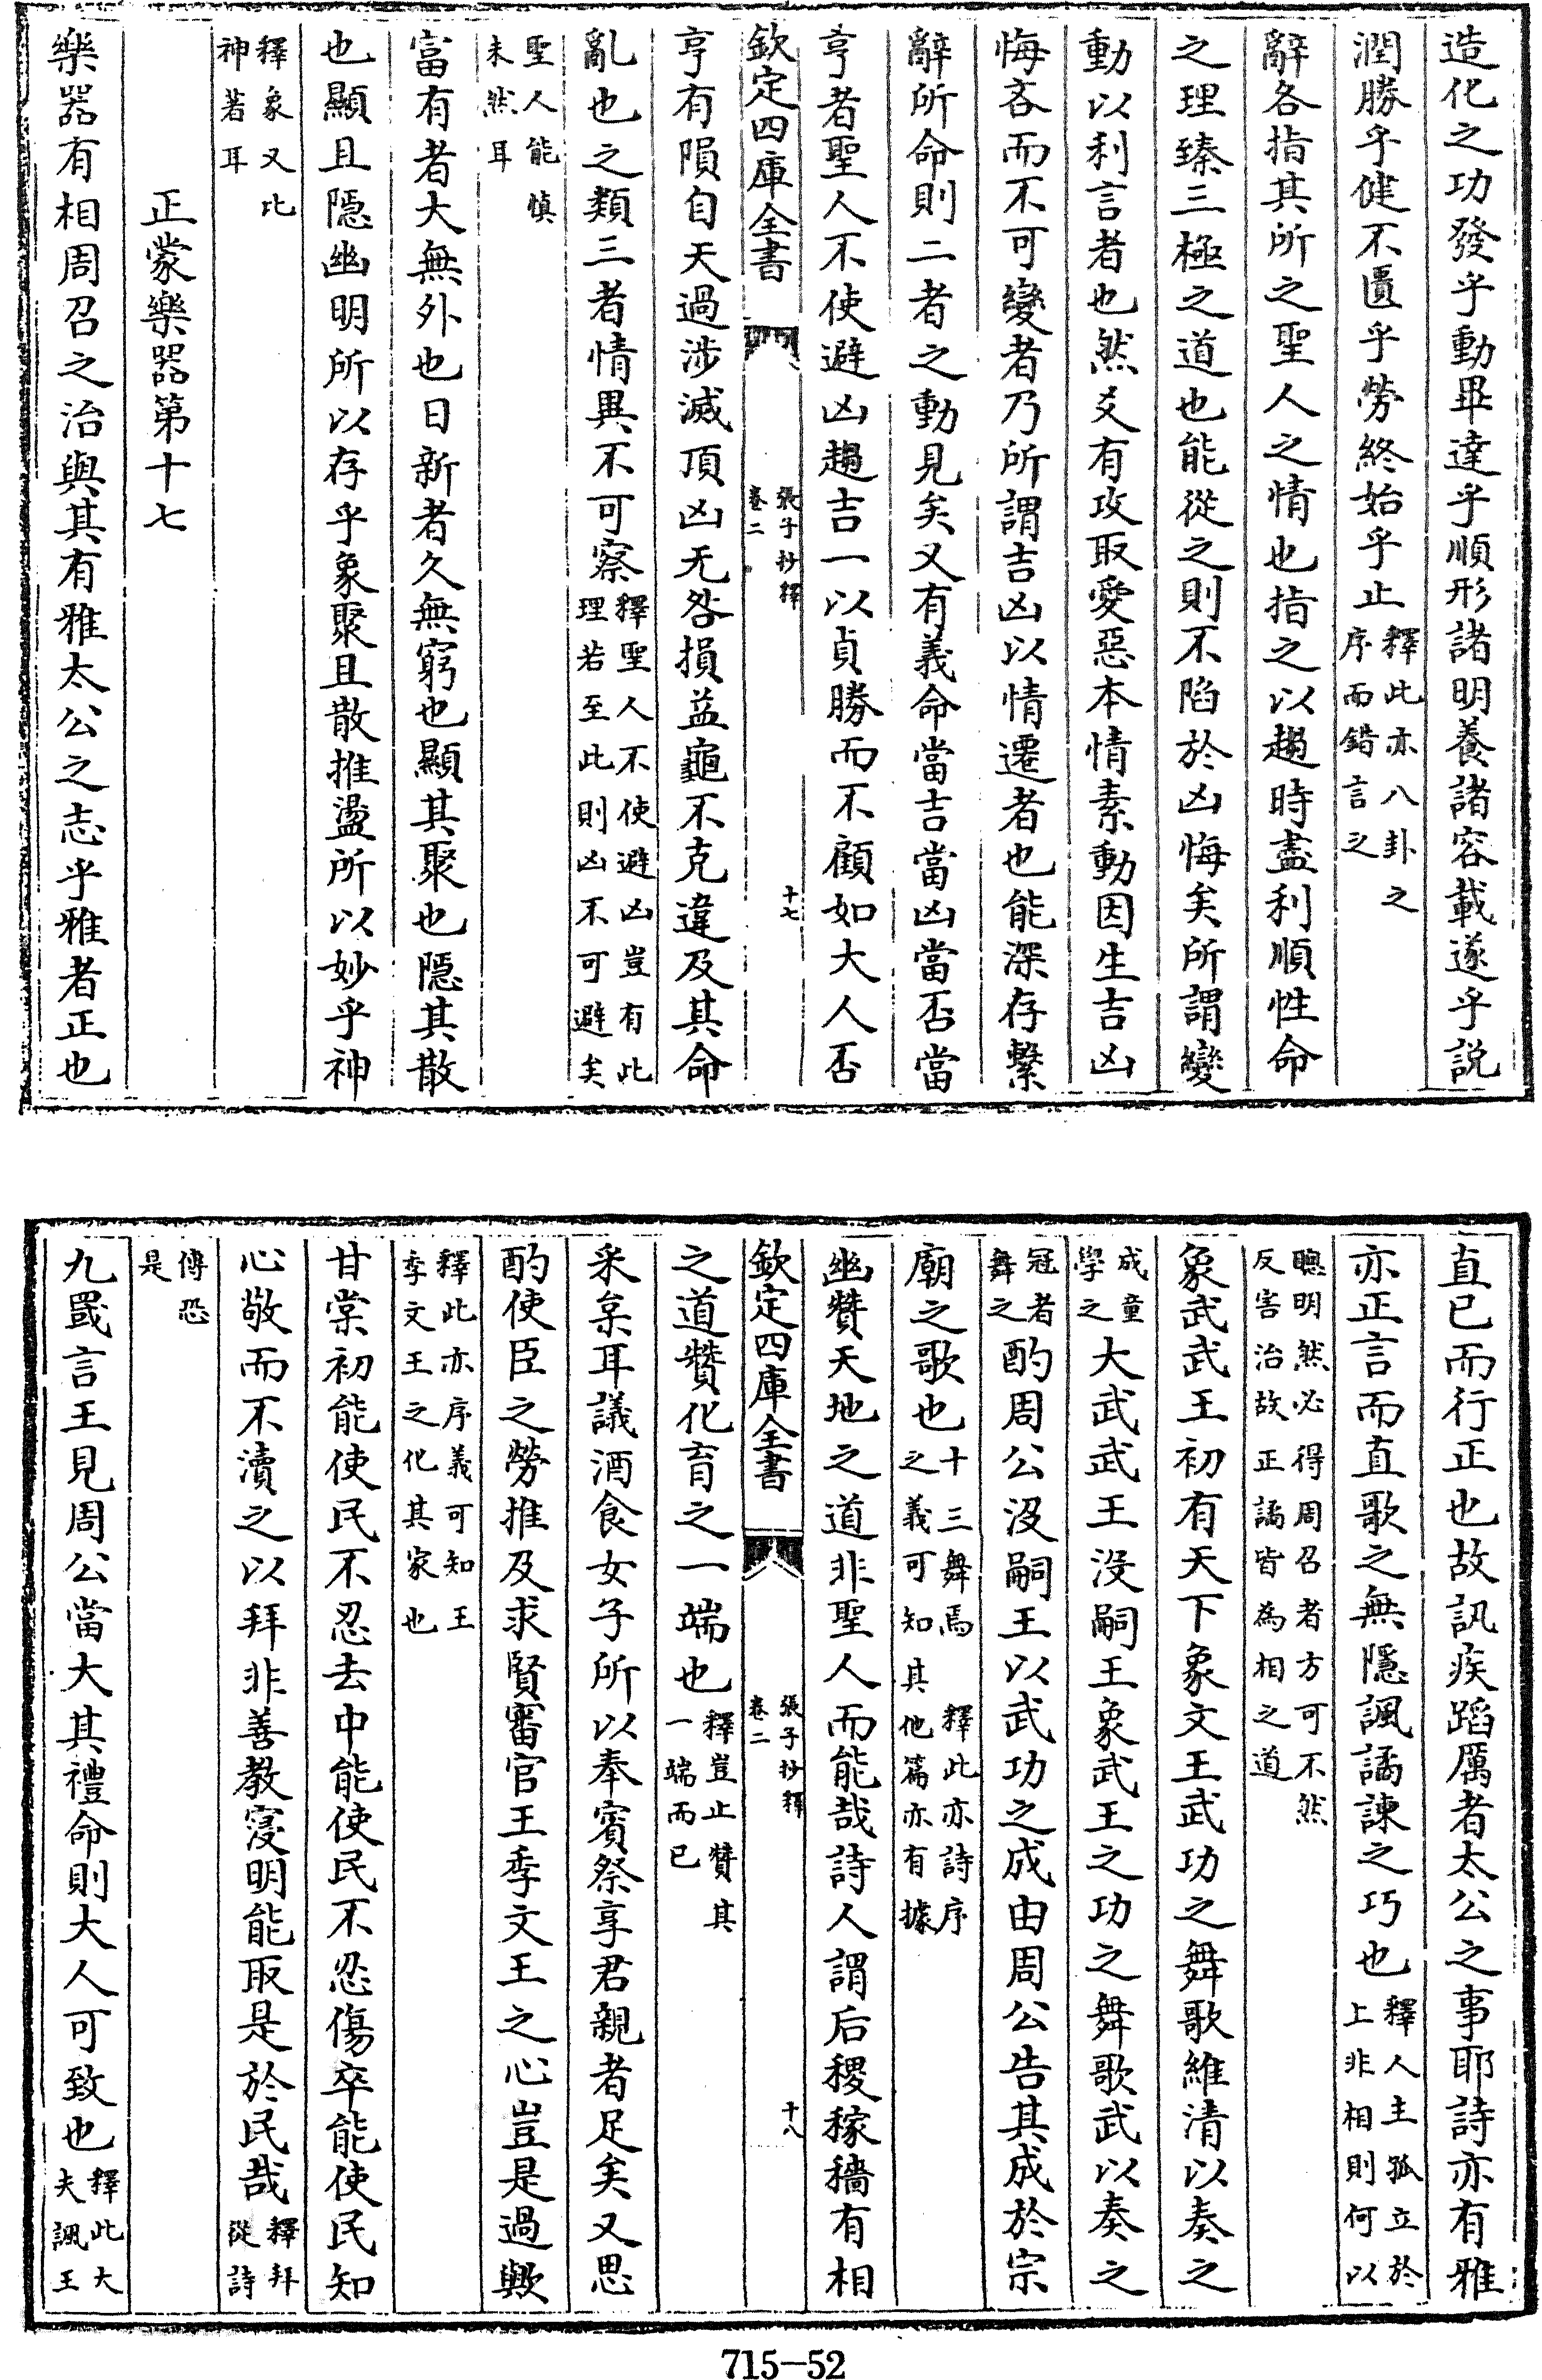 造化之功發乎動畢達乎順形諸明養諸容載遂乎説
潤勝乎健不匱乎勞終始乎止釋此亦八卦之序而錯言之
辭各指其所之聖人之情也指之以趨時盡利順性命
之理臻三極之道也能從之則不陷於凶悔矣所謂變
動以利言者也然爻有攻取愛惡本情素動因生吉凶
悔吝而不可變者乃所謂吉凶以情遷者也能深存繫
辭所命則二者之動見矣又有義命當吉當凶當否當
亨者聖人不使避凶趨吉一以貞勝而不顧如大人否
欽定四庫全書
張子抄釋
卷二
十七
亨有隕自天過涉滅頂凶无咎損益龜不克違及其命
亂也之類三者情異不可察釋聖人不使避凶豈有此理若至此則凶不可避矣
聖人能慎未然耳
富有者大無外也日新者久無窮也顯其聚也隱其散
也顯且隱幽明所以存乎象聚且散推盪所以妙乎神
釋象又比神若耳
正蒙樂器第十七
樂器有相周召之治與其有雅太公之志乎雅者正也
直已而行正也故訊疾蹈厲者太公之事耶詩亦有雅
亦正言而直歌之無隱諷譎諫之巧也釋人主孤立於上非相則何以
聰明然必得周召者方可不然反害治故正譎皆為相之道
象武武王初有天下象文王武功之舞歌維清以奏之
成童學之大武武王沒嗣王象武王之功之舞歌武以奏之
冠者舞之酌周公沒嗣王以武功之成由周公告其成於宗
廟之歌也十三舞焉之義可知其他篇亦有據釋此亦詩序
幽贊天地之道非聖人而能哉詩人謂后稷稼穡有相
欽定四庫全書
張子抄釋
卷二
十八
之道贊化育之一端也釋豈止贊其一端而已
采枲耳議酒食女子所以奉賓祭享君親者足矣又思
酌使臣之勞推及求賢審官王季文王之心豈是過歟
釋此亦序義可知王季文王之化其家也
甘棠初能使民不忍去中能使民不忍傷卒能使民知
心敬而不瀆之以拜非善教寖明能取是於民哉釋拜從詩
傳恐是
九罭言王見周公當大其禮命則大人可致也釋此大夫諷王
715-52